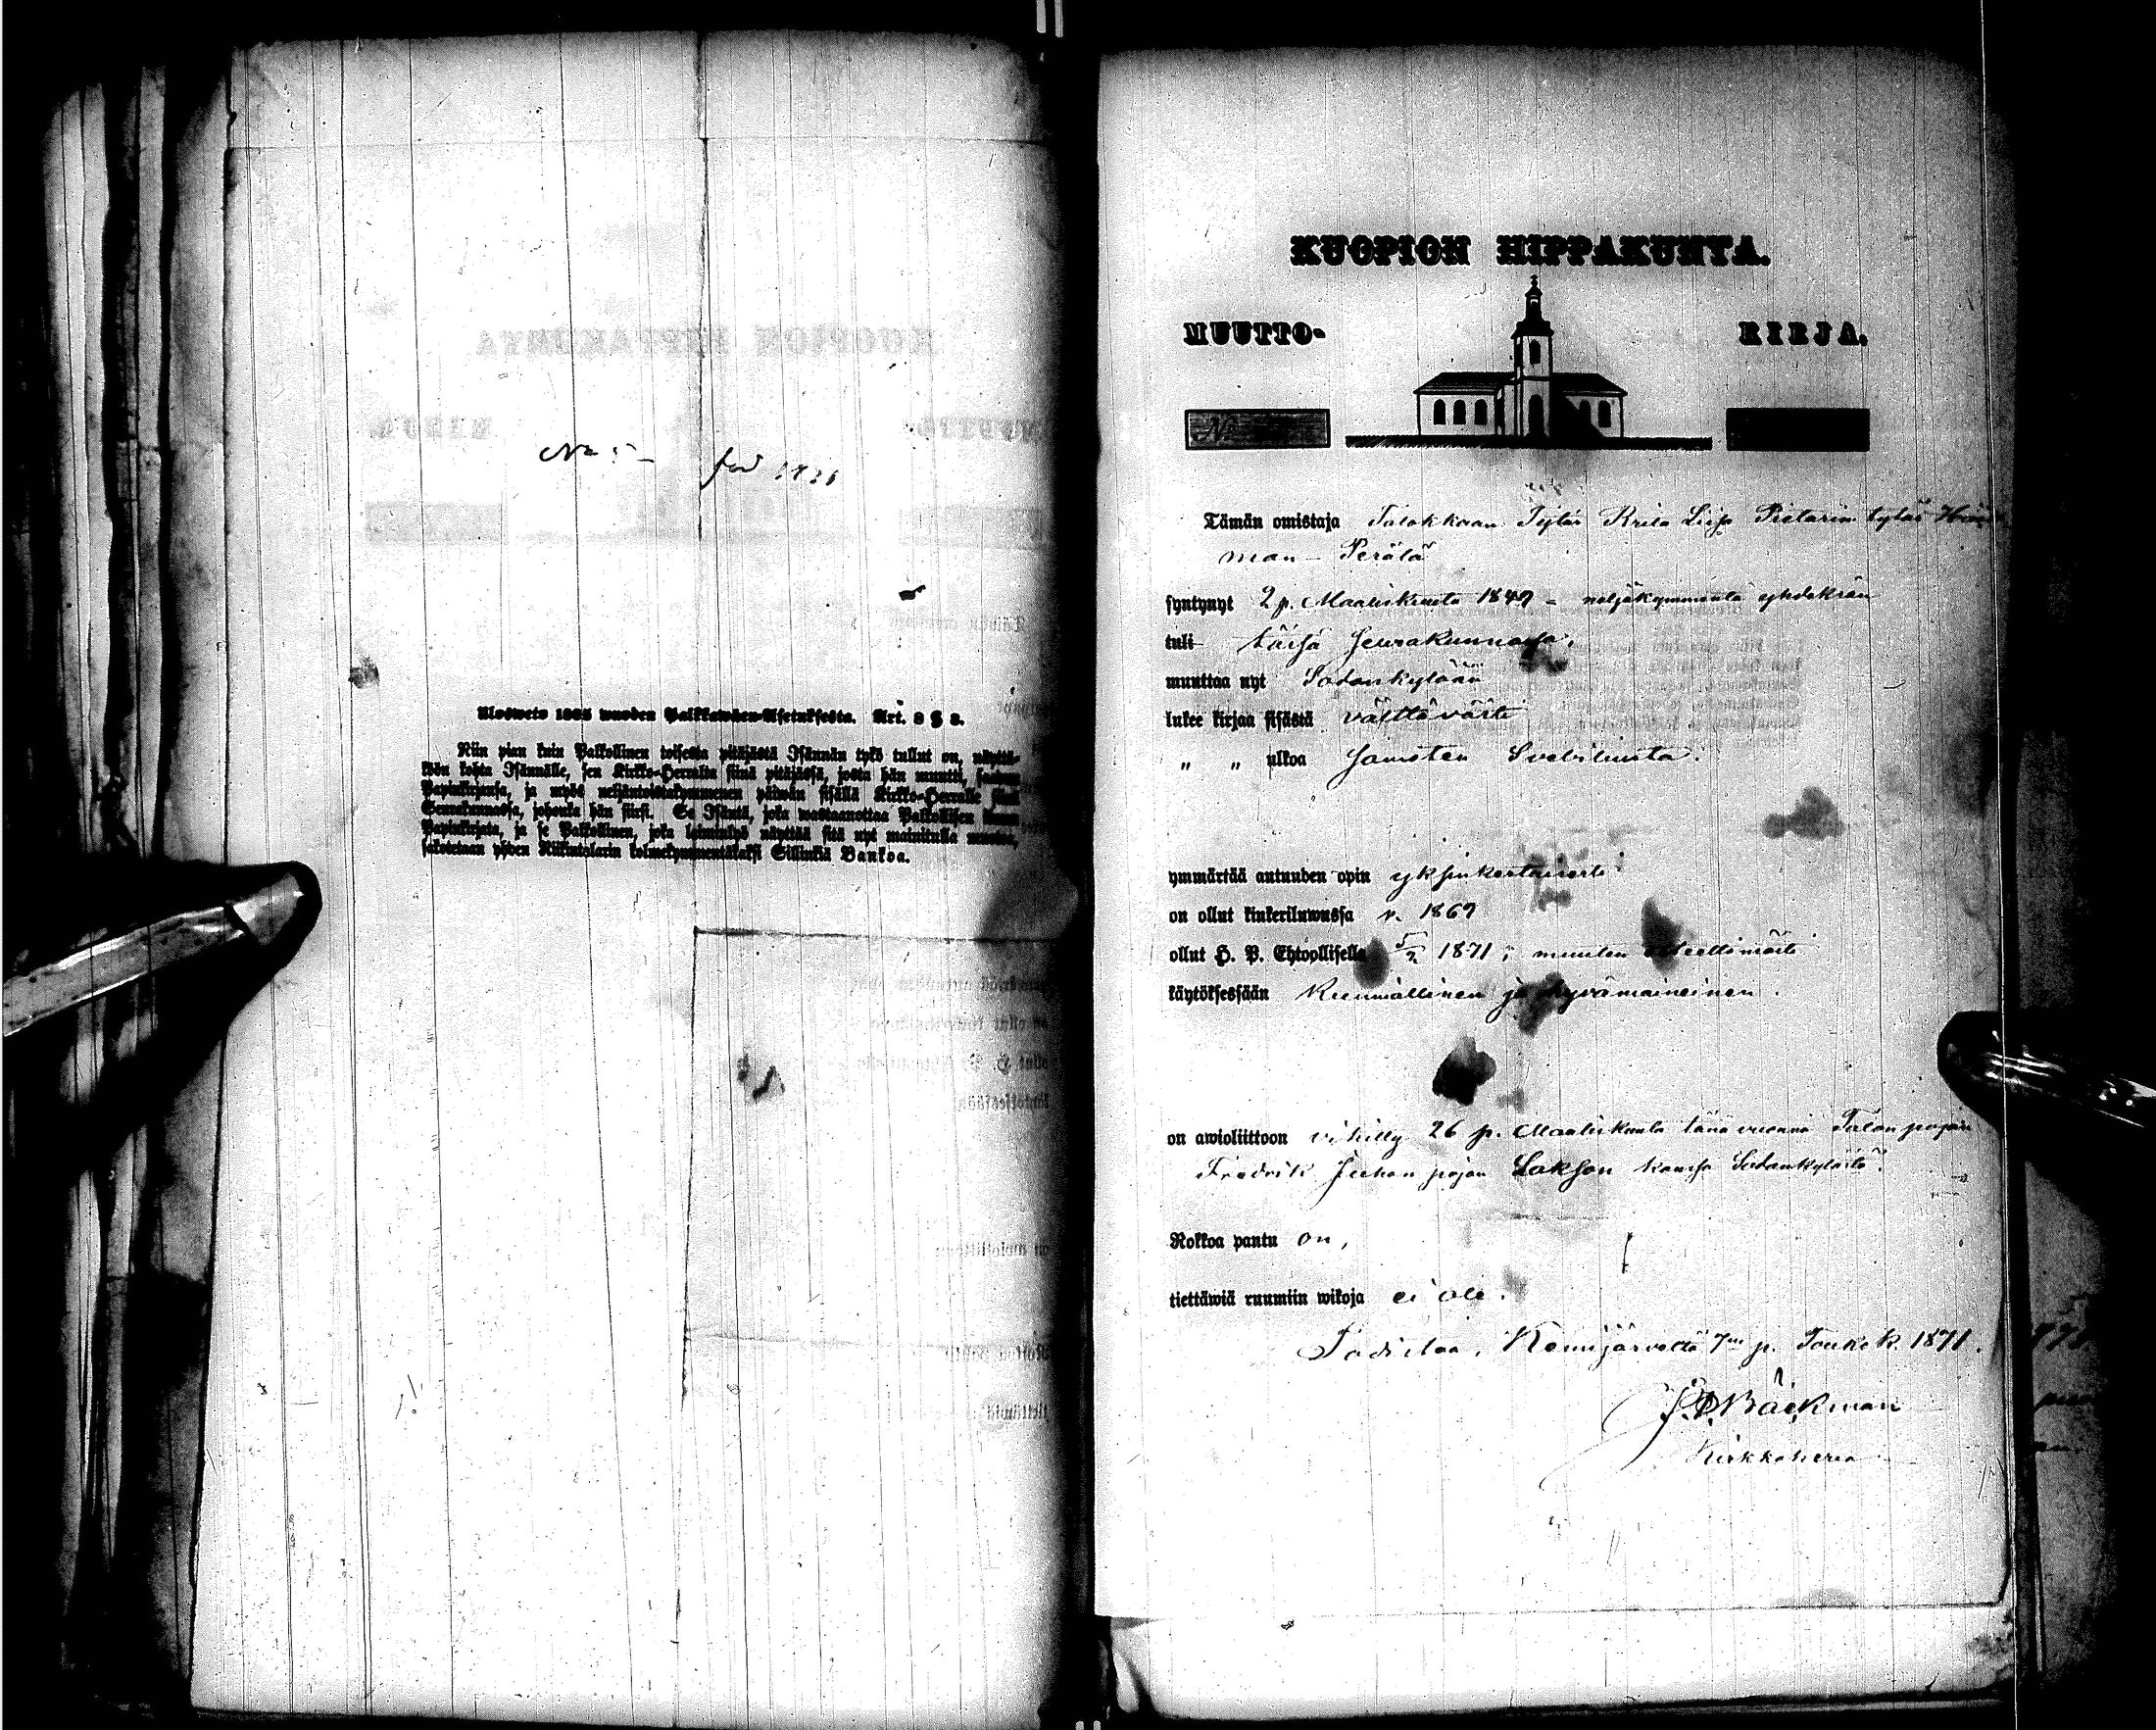 Uloswetо 1865 wuoden Palkkawäen-Asetuksesta. Art. 3 § 8.
Niin pian kuin Palkollinen toisesta pitäjästä Isännän tykö tullut on, näyttä-
köön kohta Isännälle, sen Kirkko-Herralta siinä pitäjässä, josta hän muutti, saatuun
Papinkirjansa, ja myös neljäntoistakymmenen päiwän sisällä Kirkko-Herralle siinä
Seurakunnassa, johonka hän siirsi. Se Isäntä, joka wastaanottaa Palkollisen ilman
Papinkirjata, ja se Palkollinen, joka laiminlyö näyttää sitä nyt mainitulla
sakotetaan yhden Riikintalarin kolmekymmentäkaksi Sillinkiä Bankoa.
KUOPION HIPPAKUNTA.
MUUTTO- KIRJA.
N:
Tämän omistaja Talokkaan Tytär Brita Liisa Pietarin tytär
man - Perälä
syntynyt 2 p. Maaliskuuta 1847 = neljäkymmentä
tuli tässä seurakunnassa,
muuttaa nyt Sodankylään
lukee kirjaa sisästä välttävästi
" " ulkoa samoten Svebiliusta.
ymmärtää autuuden opin yksinkertaisesti
on ollut kinkeriluwussa v. 1867
ollut H. P. Ehtoollisella 1871; muuten esteettömästi
käytöksessään kunniallinen ja hyvämaineinen.
on awioliittoon vihitty 26 p. Maaliskuuta tänä vuonna Talon pojan
Fredrik Juhan pojan Lakson kanssa Sodankylästä.
Rokkoa pantu on,
tiettäwiä ruumiin wikoja ei ole.
Todistaa, Kemijärveltä 7 p. Toukok. 1871.
Bäckman
Kirkkoherra